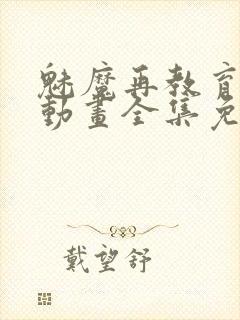 魅魔再教育
動畫全集免
戴望舒